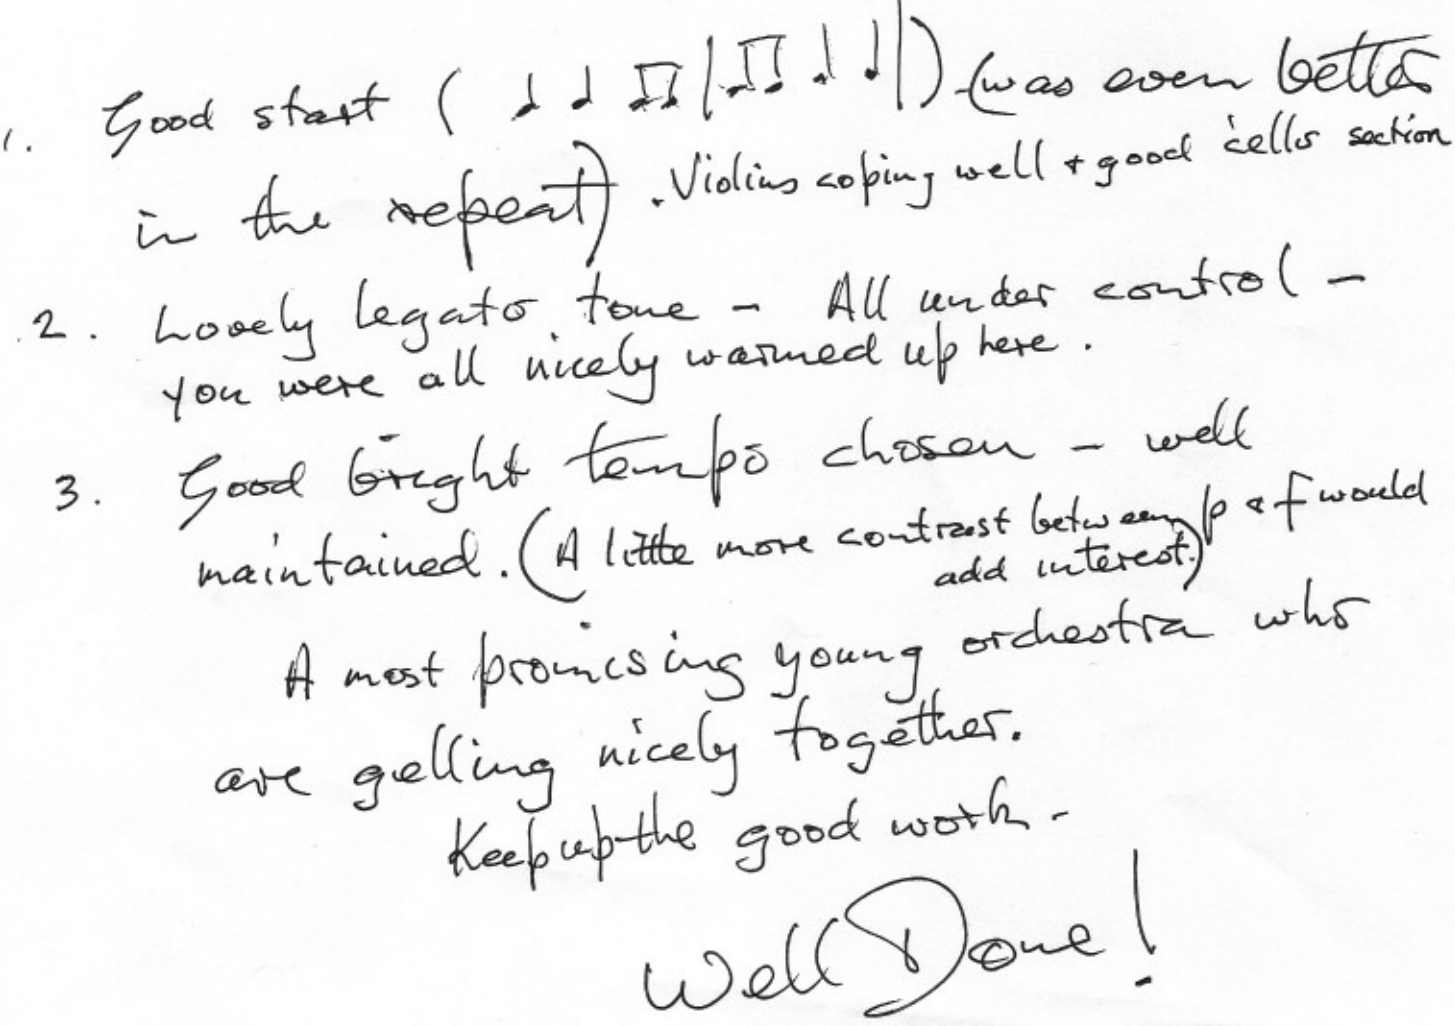 1. Good start ( ♩ ♩ ♫ | ♫ ♩ ♩ | ) (was even better
in the repeat). Violins coping well + good 'cello section
2. Lovely legato tone - All under control -
you were all nicely warmed up here.
3. Good bright tempo chosen - well
maintained. (A little more contrast between p & f would
add interest.)
A most promising young orchestra who
are gelling nicely together.
Keep up the good work -
Well Done!